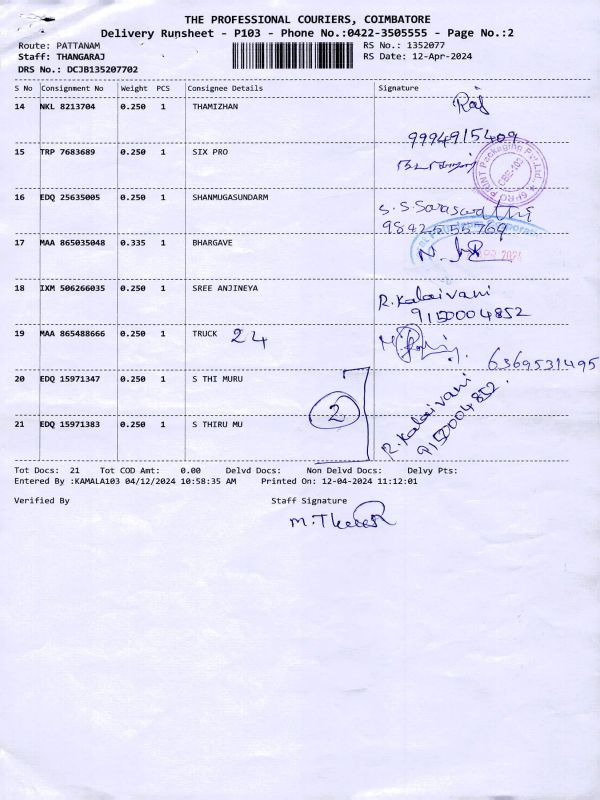 THE PROFESSIONAL COURIERS, COIMBATORE
Delivery Runsheet - P103 - Phone No.:0422-3505555 - Page No.:2
Route: PATTANAM RS No.: 1352077
Staff: THANGARAJ RS Date: 12-Apr-2024
DRS No.: DCJB135207702
S No Consignment No Weight PCS Consignee Details Signature
14 NKL 8213704 0.250 1 THAMIZHAN Raj
9994915409
15 TRP 7683689 0.250 1 SIX PRO
16 EDQ 25635005 0.250 1 SHANMUGASUNDARM S.S.Saraswathi
9842555769
17 MAA 865035048 0.335 1 BHARGAVE
18 IXM 506266035 0.250 1 SREE ANJINEYA R.Kalaivani
9150004852
19 MAA 865488666 0.250 1 TRUCK 24
6369531495
20 EDQ 15971347 0.250 1 S THI MURU
21 EDQ 15971383 0.250 1 S THIRU MU 2 R.Kalaivani
9150004852.
Tot Docs: 21 Tot COD Amt: 0.00 Delvd Docs: Non Delvd Docs: Delvy Pts:
Entered By :KAMALA103 04/12/2024 10:58:35 AM Printed On: 12-04-2024 11:12:01
Verified By Staff Signature